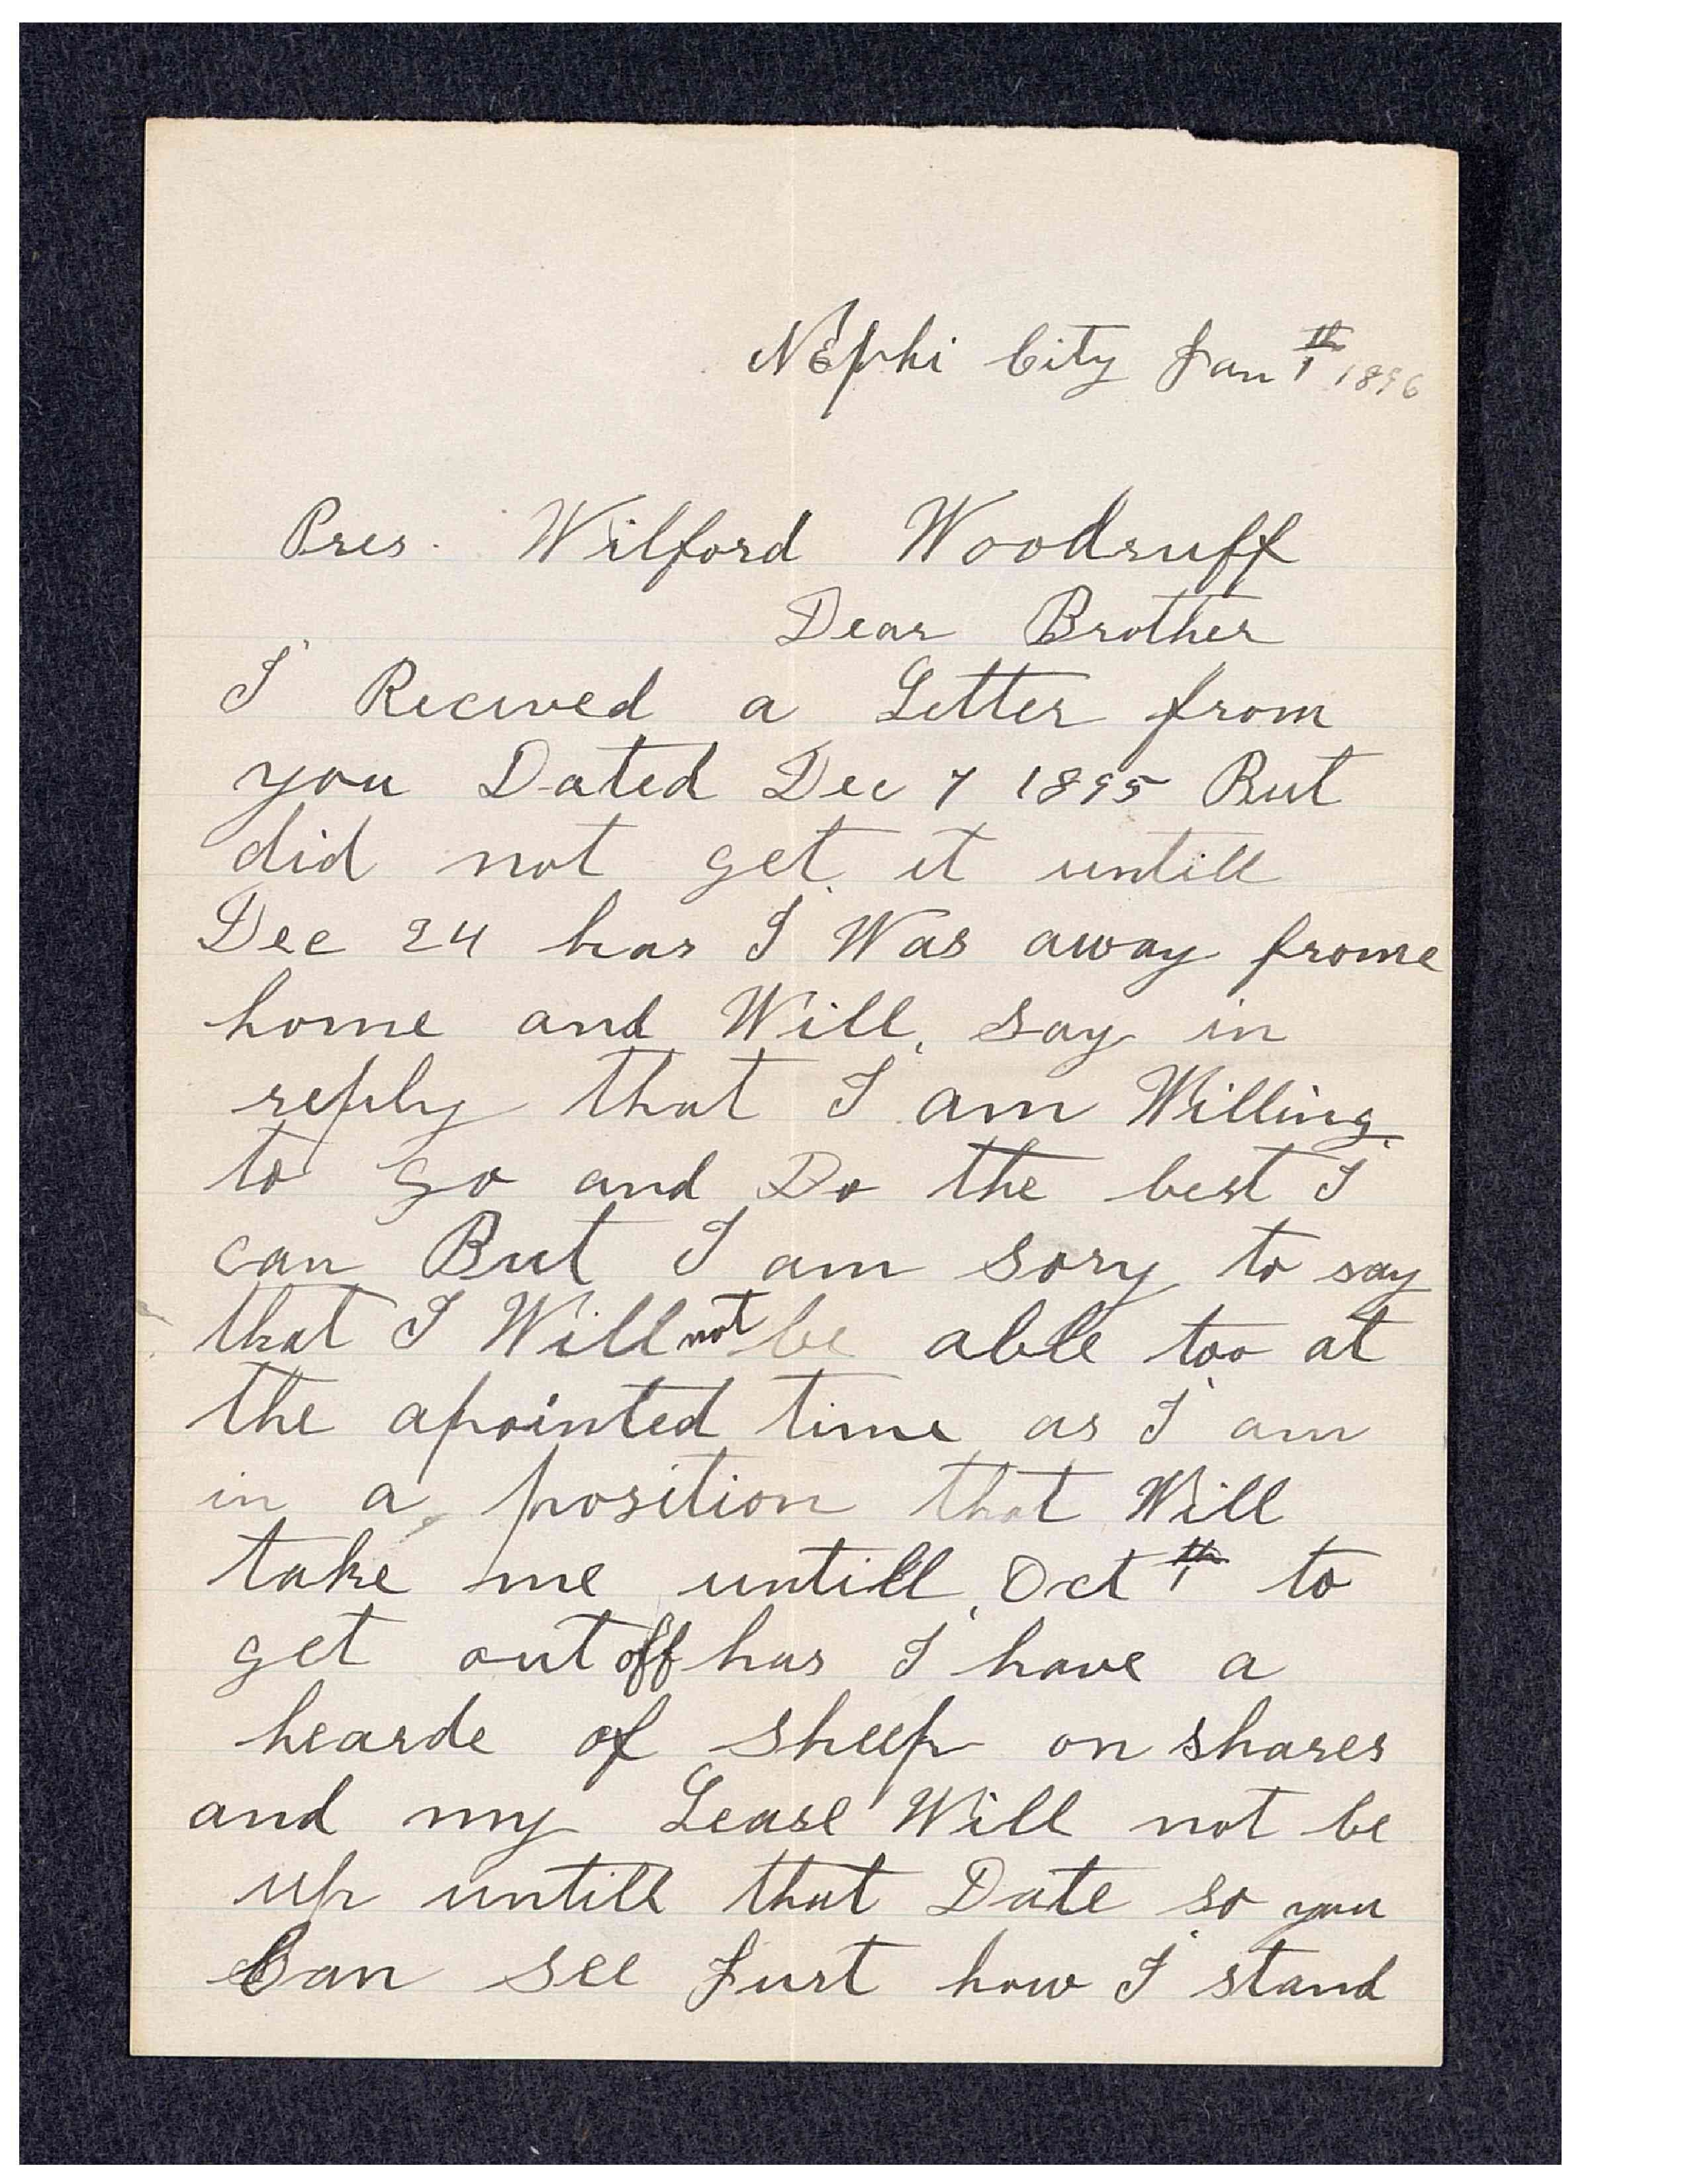 Nephi City Jan 1th 1896
Pres. Wilford Woodruff
Dear Brother
I Recieved a Letter from
you Dated Dec 7 1895 But
did not get it untill
Dec 24 has I Was away frome
home and Will say in
reply that I am Willing
to go and Do the best I
can But I am sory to say
that I Will not be able too at
the apointed time as I am
in a position that Will
take me untill Oct 1th to
get out off has I have a
hearde of sheep on shares
and my Lease Will not be
up untill that Date so you
Can see Just how I stand